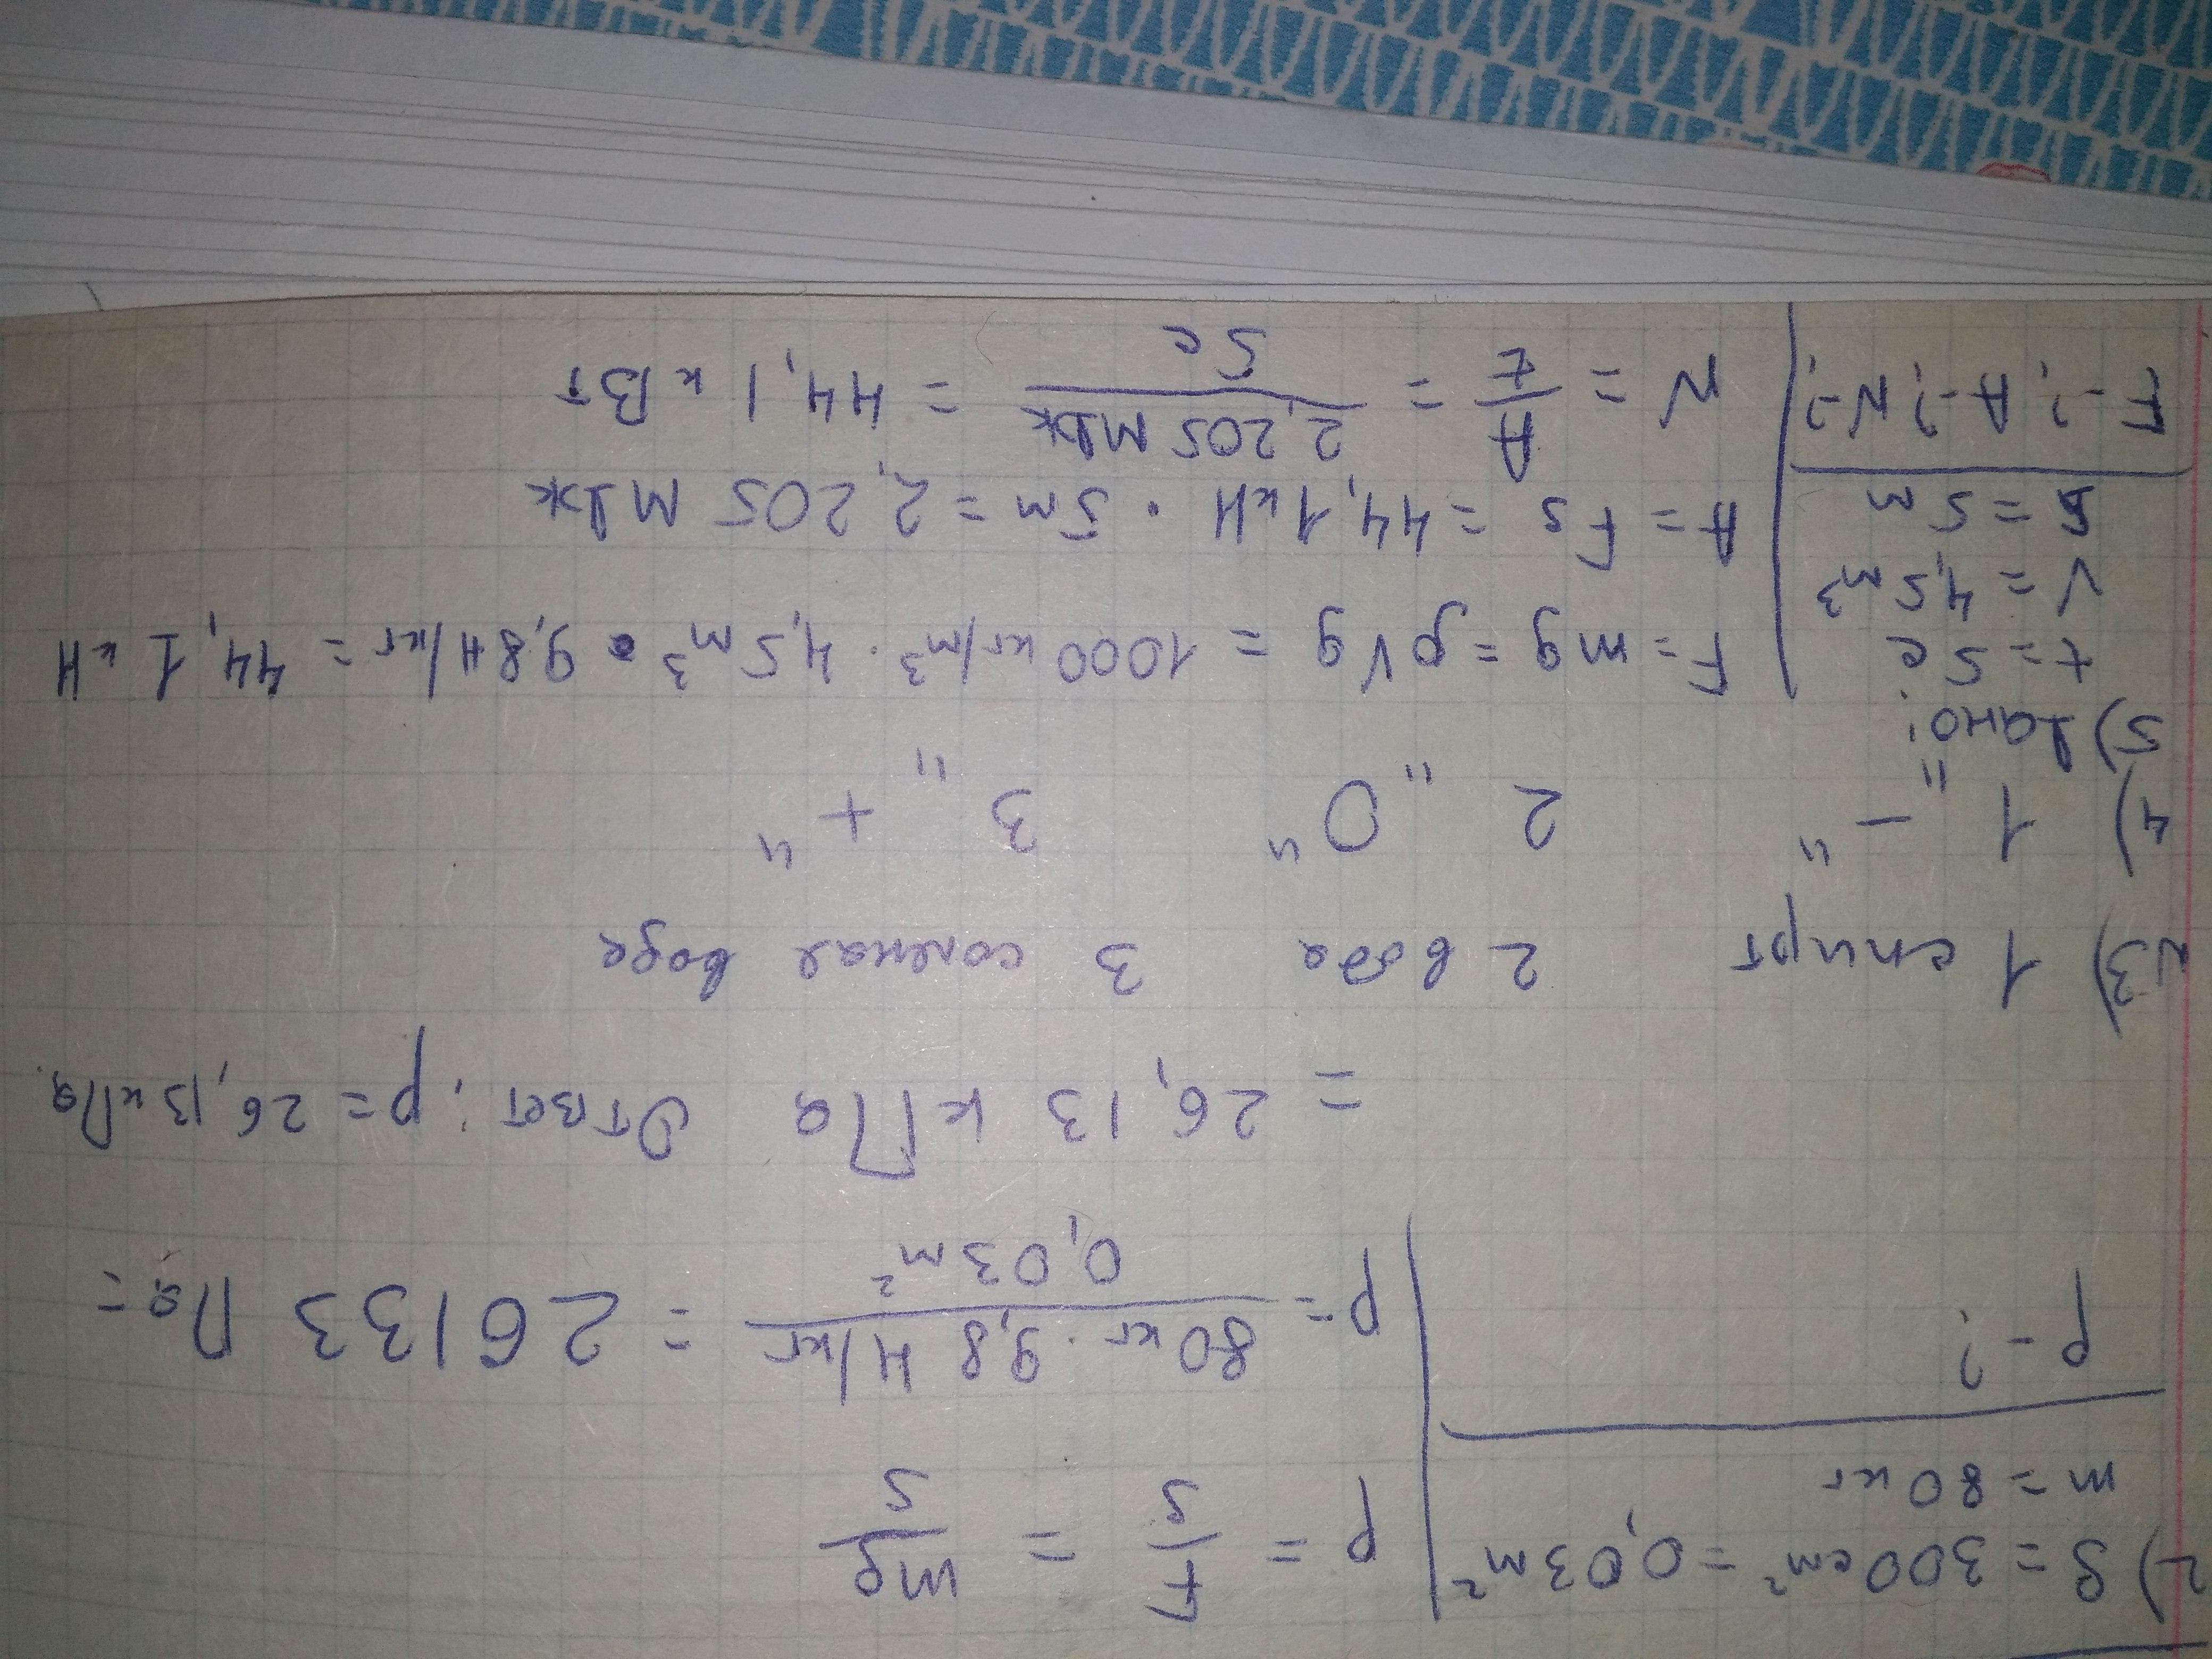 2) S = 300 см² = 0,03 м²
m = 80 кг
p - ?
p = F/S = mg/S
p = 80 кг · 9,8 Н/кг / 0,03 м² = 26133 Па =
= 26,13 кПа Ответ: p = 26,13 кПа.
№3) 1 спирт 2 вода 3 соленая вода
4) 1 „ - “ 2 „ 0 “ 3 „ + “
5) Дано:
t = 5 с
V = 4,5 м³
S = 5 м
F - ?, A - ?, N - ?
F = mg = ρVg = 1000 кг/м³ · 4,5 м³ · 9,8 Н/кг = 44,1 кН
A = Fs = 44,1 кН · 5 м = 2,205 МДж
N = A/t = 2,205 МДж / 5 с = 44,1 кВт